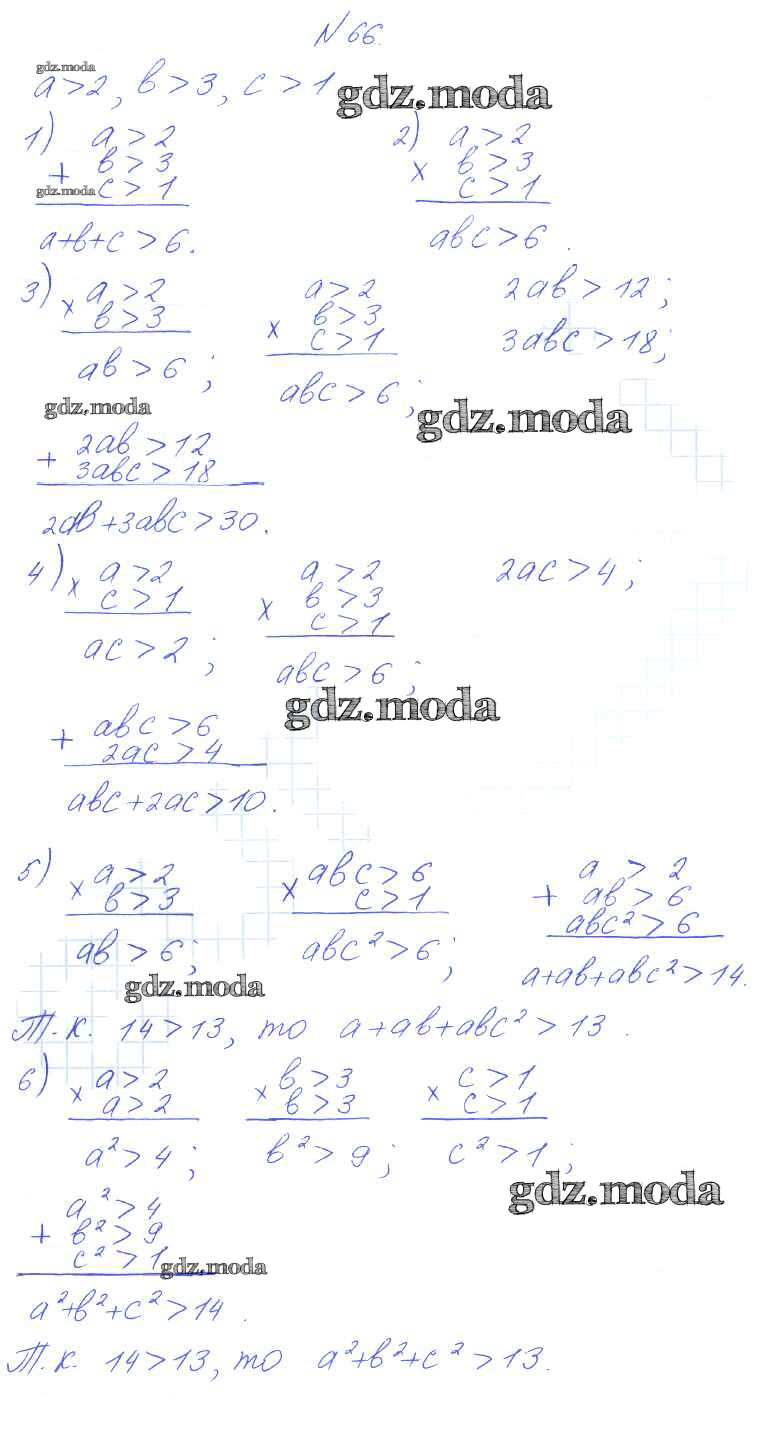 N 66.
gdz.moda
a>2, в>3, c>1
gdz.moda
1) a>2
+ в>3
gdz.moda
c>1
a+в+c>6.
2) a>2
x в>3
c>1
aвc>6.
3) x a>2
в>3
aв>6;
a>2
x в>3
c>1
aвc>6;
2aв>12;
3aвc>18;
gdz.moda
gdz.moda
+ 2aв>12
3aвc>18
2aв+3aвc>30.
4) x a>2
c>1
ac>2;
a>2
x в>3
c>1
aвc>6;
2ac>4;
gdz.moda
+ aвc>6
2ac>4
aвc+2ac>10.
5) x a>2
в>3
aв>6;
x aвc>6
c>1
aвc²>6;
a>2
+ aв>6
aвc²>6
a+aв+aвc²>14.
gdz.moda
Т.к. 14>13, то a+aв+aвc²>13.
6) x a>2
a>2
a²>4;
x в>3
в>3
в²>9;
x c>1
c>1
c²>1;
gdz.moda
a²>4
+ в²>9
c²>1
gdz.moda
a²+в²+c²>14.
Т.к. 14>13, то a²+в²+c²>13.